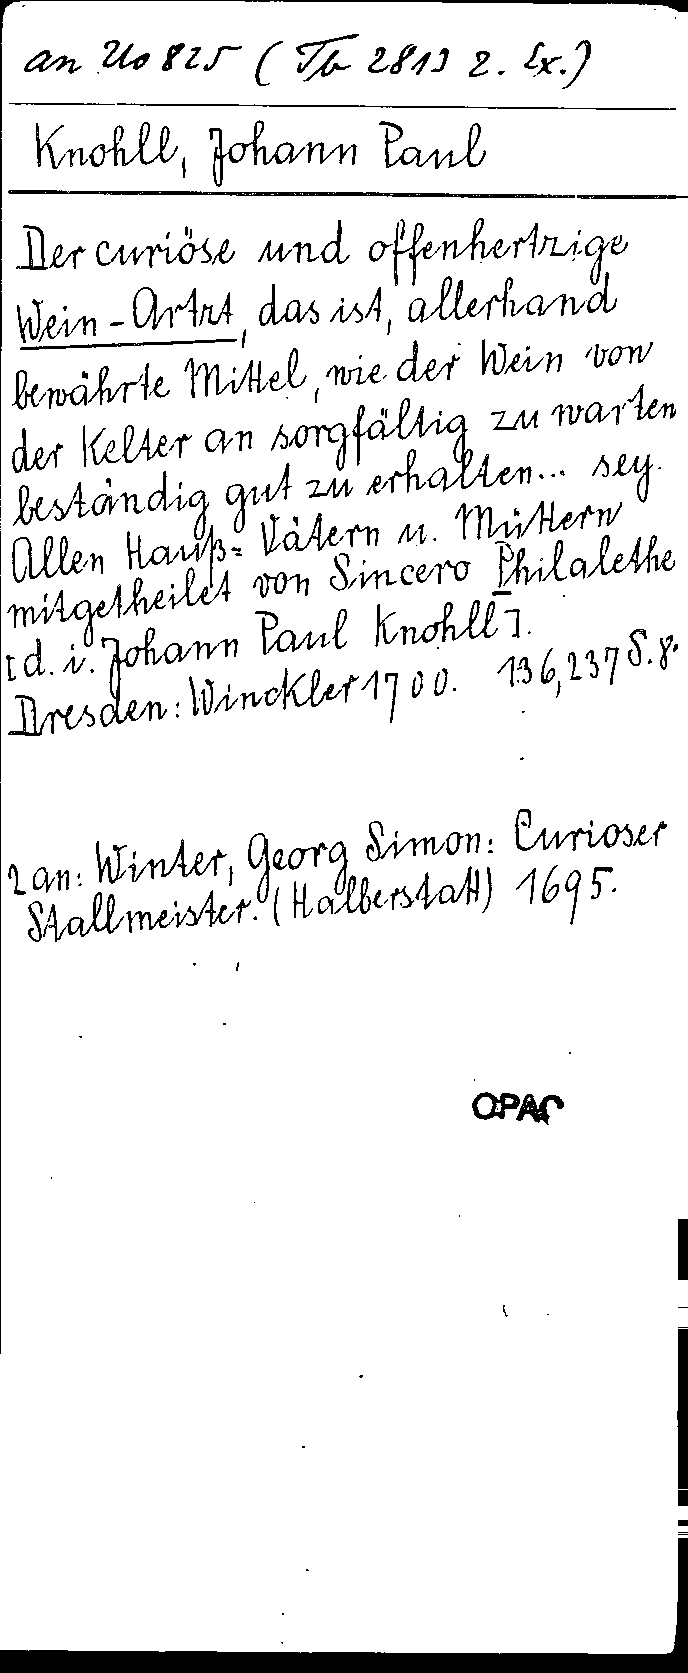 an Uo 825 (Tb 2813 2. Ex.)
Knohll, Johann Paul
Der curiöse und offenhertzige
Wein-Artzt, das ist, allerhand
bewährte Mittel, wie der Wein von
der Kelter an sorgfältig zu warten
beständig gut zu erhalten... sey.
Allen Hauß= Vätern u. Müttern
mitgetheilet von Sincero Philalethe
[d. i. Johann Paul Knohll].
Dresden: Winckler 1700. 136, 237 S. 8.
2 an: Winter, Georg Simon: Curioser
Stallmeister. (Halberstatt) 1695.
OPAC